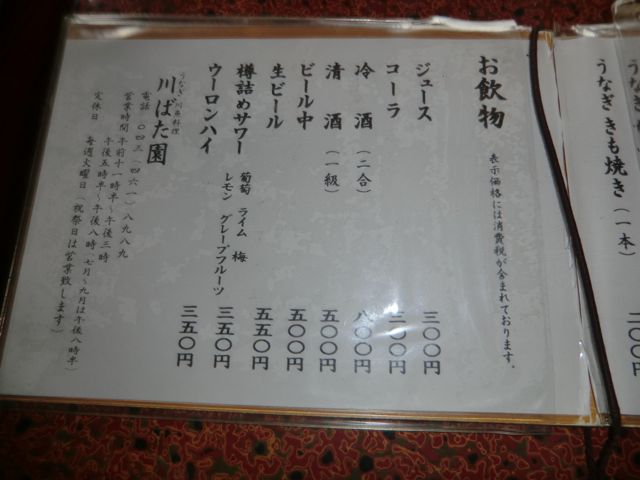 うなぎ きも焼き（一本）
お飲物 表示価格には消費税が含まれております。
ジュース 三〇〇円
コーラ 三〇〇円
冷酒（二合） 八〇〇円
清酒（一級） 五〇〇円
ビール中 五〇〇円
生ビール 五五〇円
樽詰めサワー 葡萄 ライム 梅
レモン グレープフルーツ 三五〇円
ウーロンハイ 三五〇円
うなぎ・川魚料理
川ばた園
電話 〇四三（四六一）八九八九
営業時間 午前十一時半〜午後三時
午後五時半〜午後八時（七月〜九月は午後八時半）
定休日 毎週火曜日（祝祭日は営業致します）